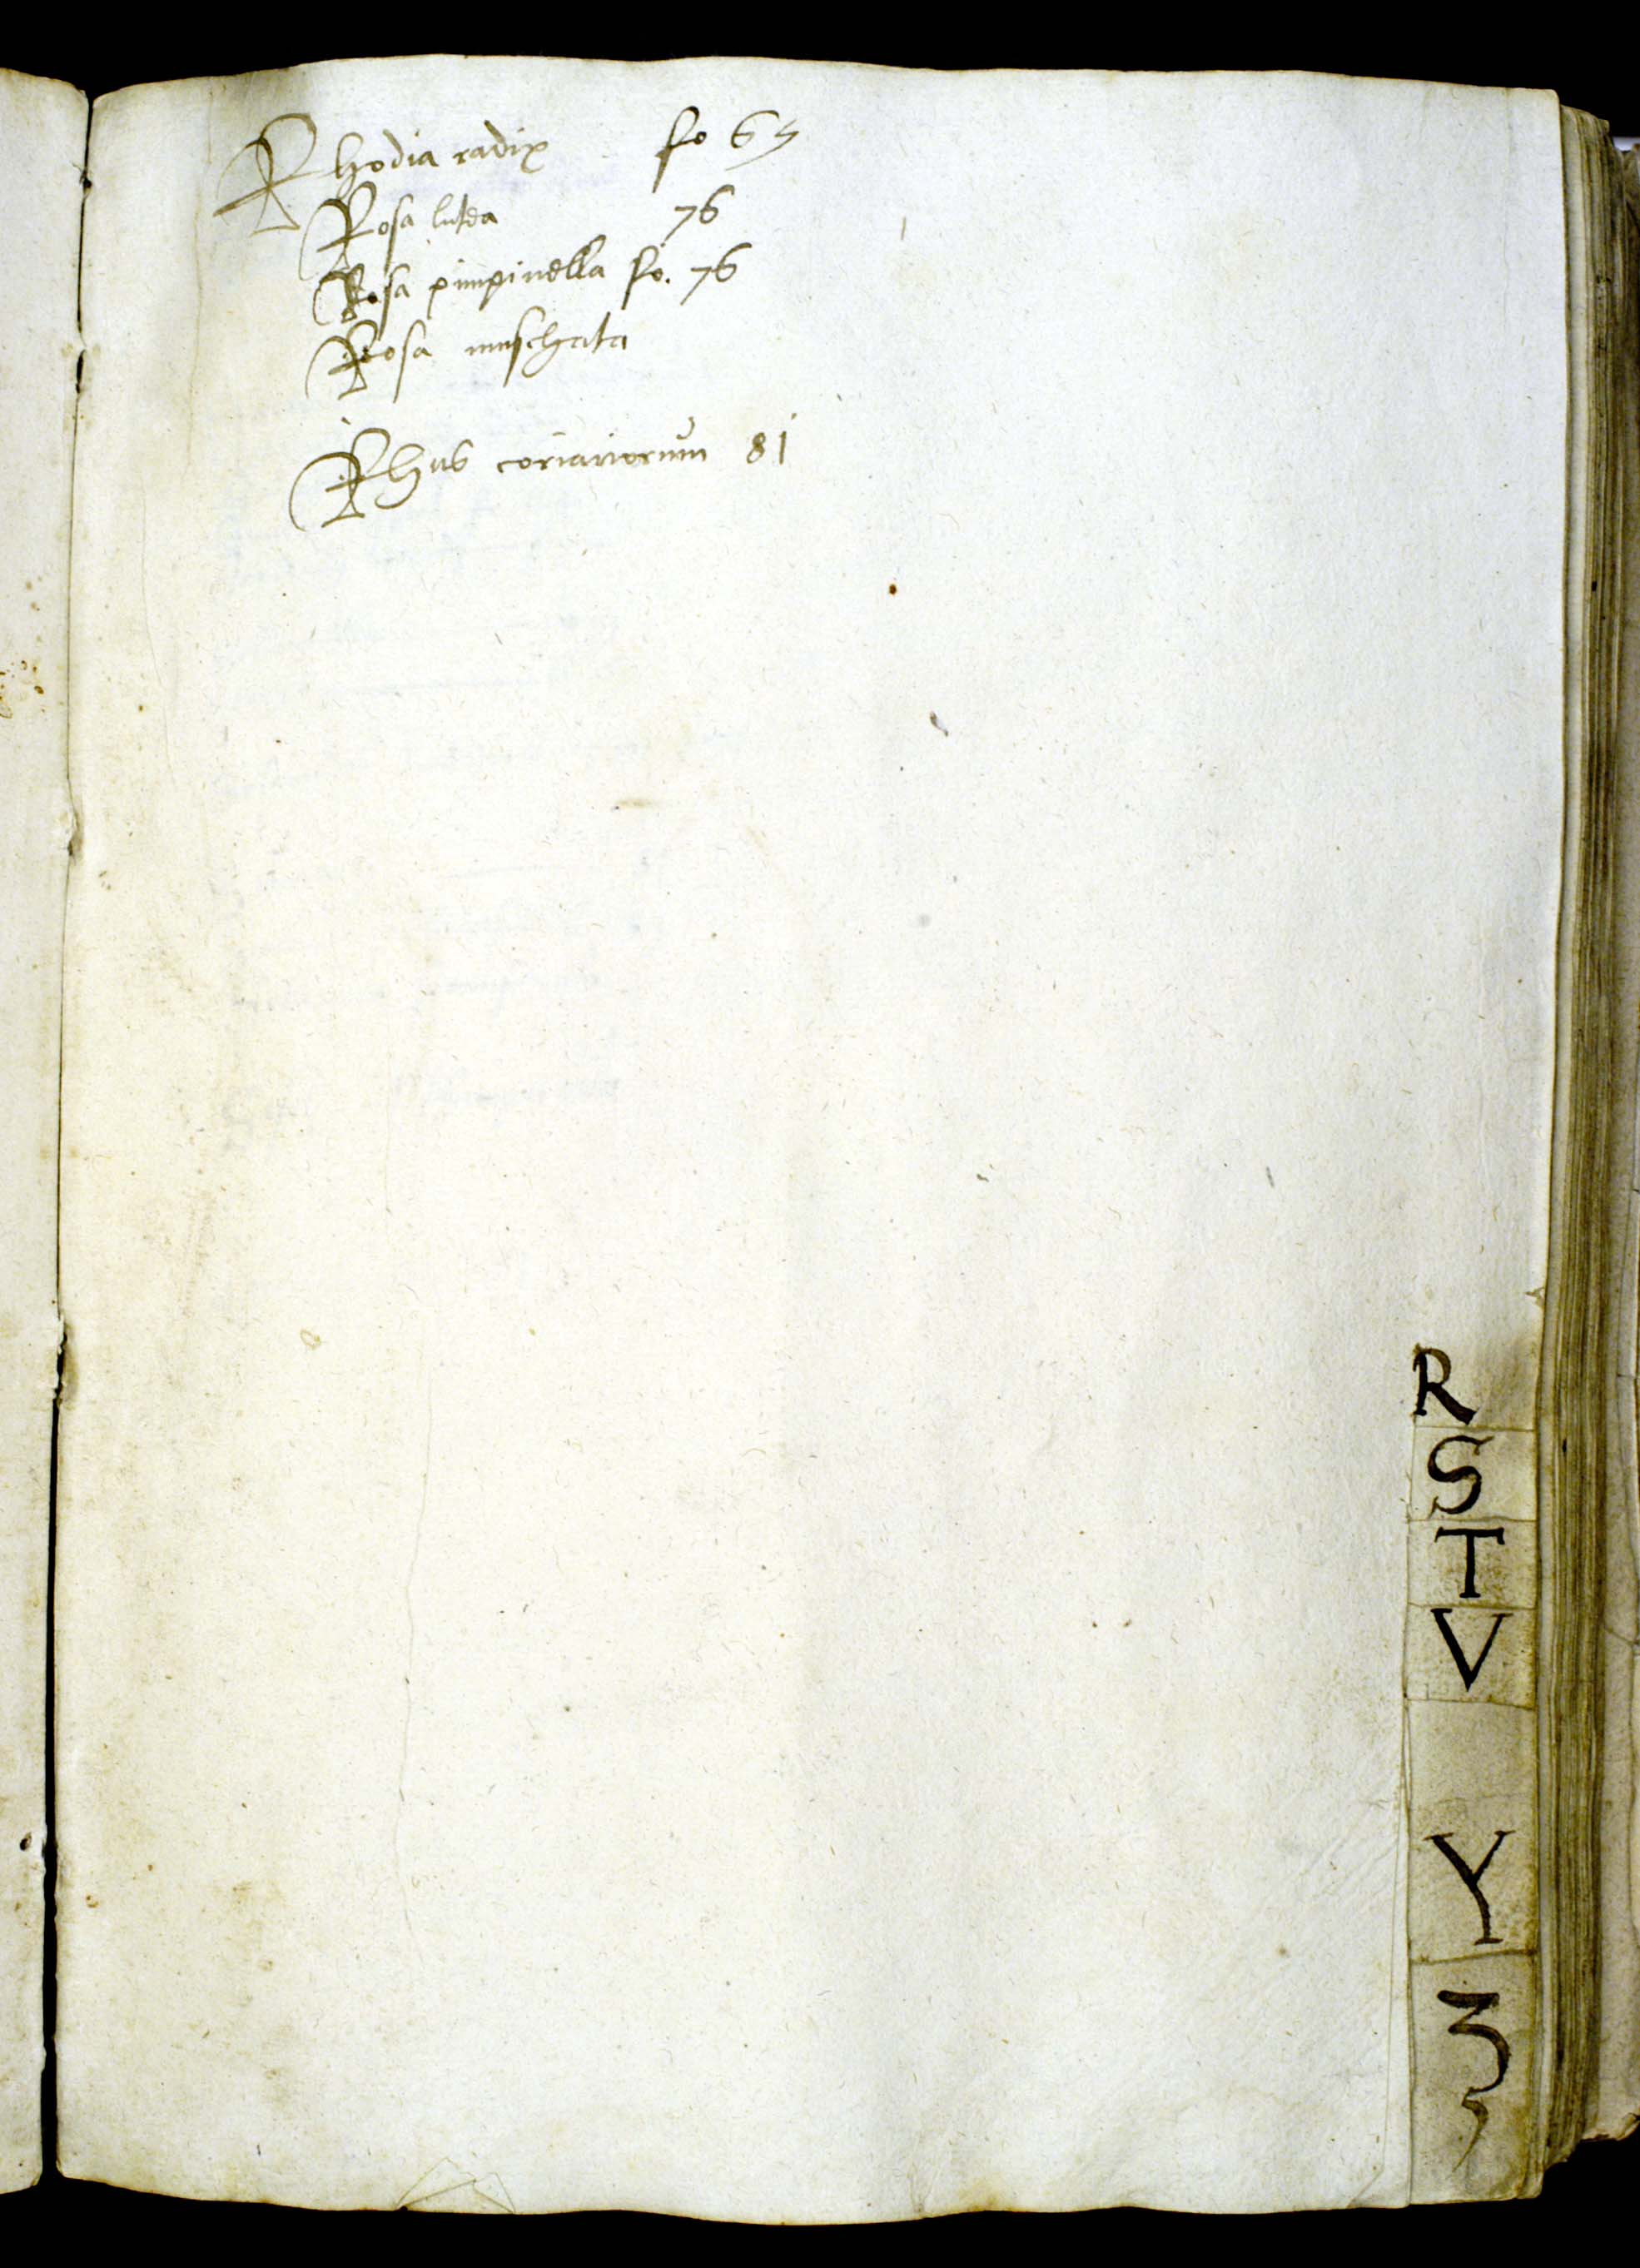 Rhodia radix fo 65
Rosa lutea 76
Rosa pimpinella fo. 76
Rosa muschata
Rhus coriariorum 81
R
S
T
V
Y
Z